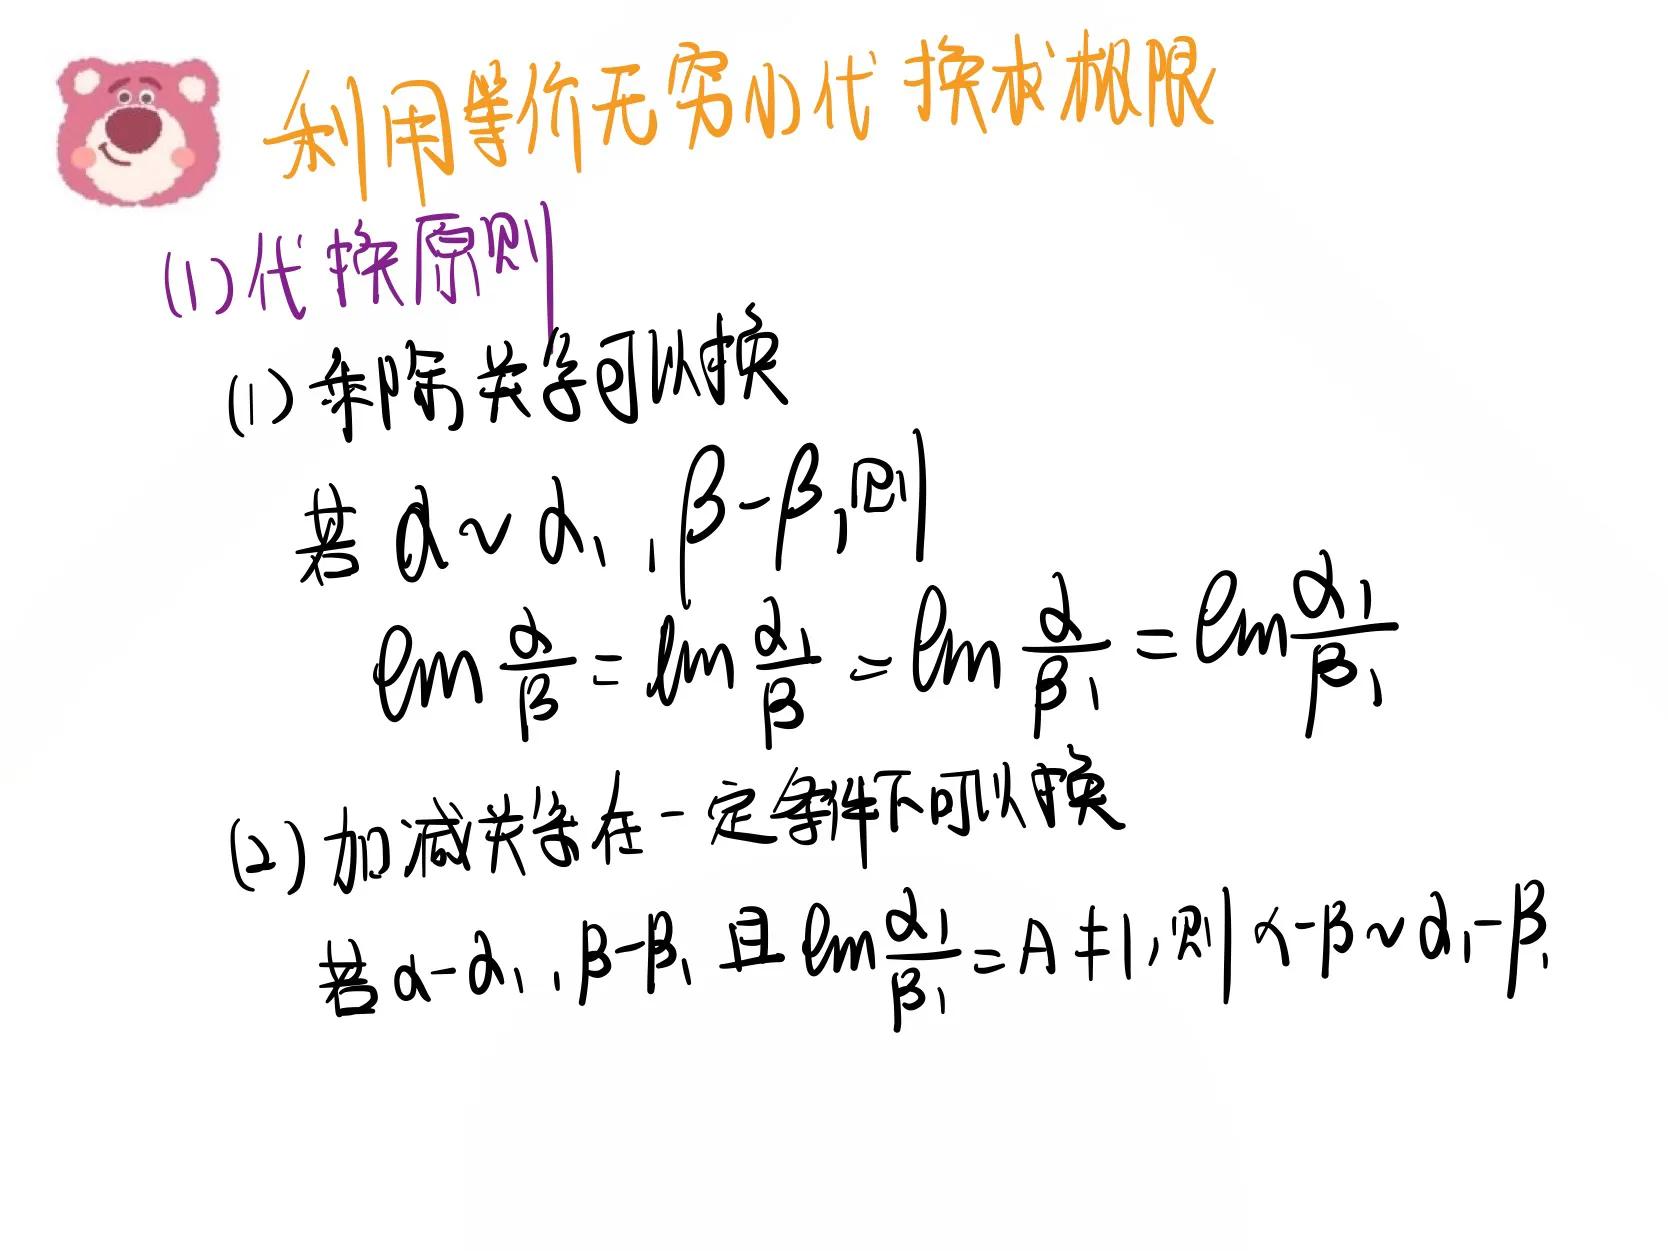 利用等价无穷小代换求极限
(1)代换原则
(1)乘除关系可以换
若 α~α₁, β-β₁则
lim α/β = lim α₁/β = lim α/β₁ = lim α₁/β₁
(2)加减关系在一定条件下可以换
若 α-α₁, β-β₁ 且 lim α₁/β₁ = A≠1, 则 α-β~α₁-β₁